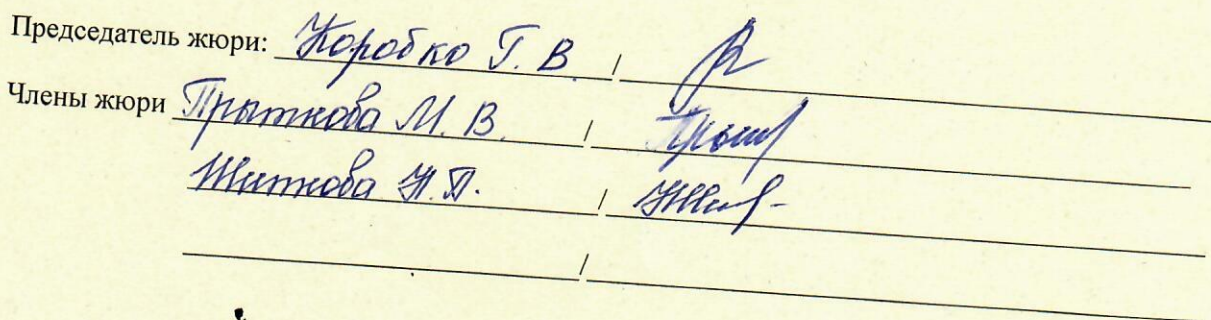 Председатель жюри: Коробко Г. В. /
Члены жюри Прыткова М. В. / Прыт
Житкова Н. П. /
/